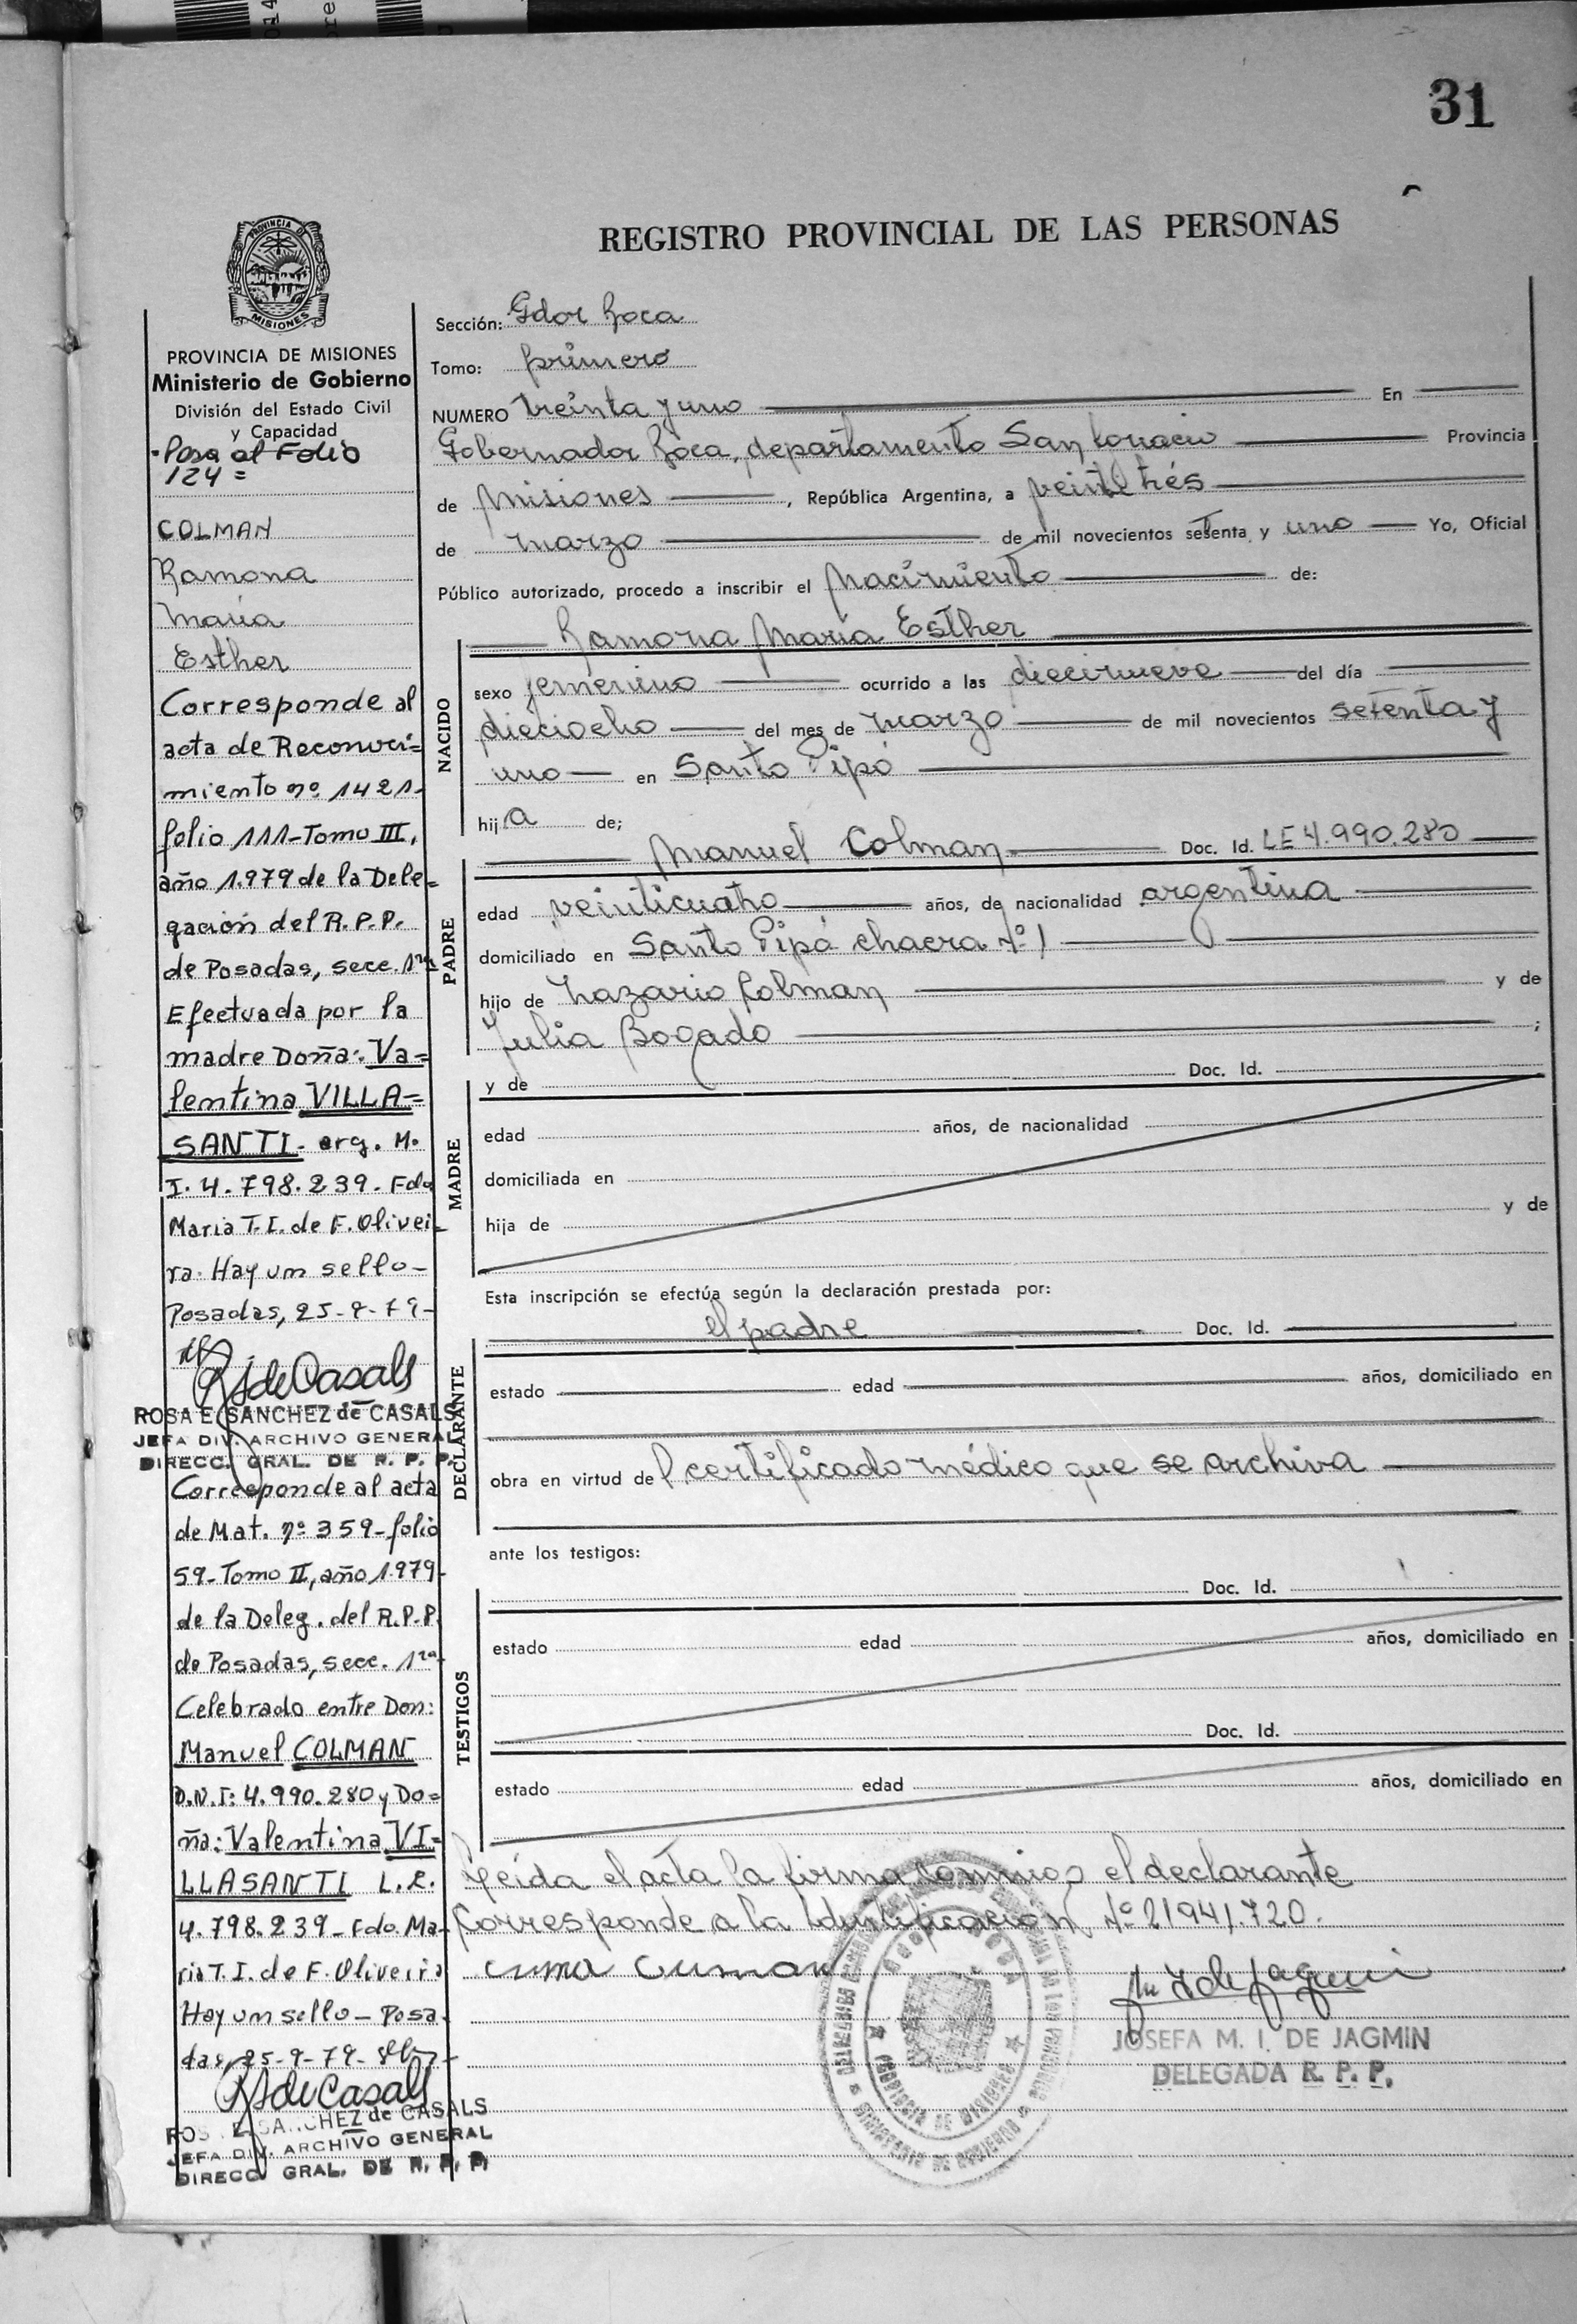 31
REGISTRO PROVINCIAL DE LAS PERSONAS
PROVINCIA DE
MISIONES
PROVINCIA DE MISIONES
Ministerio de Gobierno
División del Estado Civil
y Capacidad
-Pasa al Folio
124=
COLMAN
Ramona
María
Esther
Corresponde al
acta de Reconoci=
miento nº 1421-
folio 111-Tomo III,
año 1.979 de la Dele=
gación del R.P.P.
de Posadas, secc. 1ra
Efectuada por la
madre Doña: Va=
lentina VILLA=
SANTI- arg. M.
I. 4.798.239- Fdo
Maria T.I. de F. Olivei-
ra. Hay un sello-
Posadas, 25-9-79-
RSdeCasals
ROSA E. SANCHEZ de CASALS
JEFA DIV. ARCHIVO GENERAL
DIRECC. GRAL. DE R. P. P.
Corresponde al acta
de Mat. nº 359-folio
59-Tomo II, año 1.979-
de la Deleg. del R.P.P.
de Posadas, secc. 1ra-
Celebrado entre Don:
Manuel COLMAN
D.N.I: 4.990.280 y Do=
ña: Valentina VI=
LLASANTI L.E.
4.798.239- Fdo. Ma-
ria T.I. de F. Oliveira
Hay un sello- Posa-
das, 25-9-79-
RSdeCasals
ROSA E. SANCHEZ de CASALS
JEFA DIV. ARCHIVO GENERAL
DIRECC. GRAL. DE R. P. P.
Sección: Gdor Roca
Tomo: primero
NUMERO treinta y uno En
Gobernador Roca, departamento San Ignacio Provincia
de Misiones, República Argentina, a veintitrés
de marzo de mil novecientos setenta y uno Yo, Oficial
Público autorizado, procedo a inscribir el Nacimiento de:
NACIDO
Ramona María Esther
sexo femenino ocurrido a las diecinueve del día
dieciocho del mes de marzo de mil novecientos setenta y
uno en Santo Pipó
hija de;
PADRE
Manuel Colman Doc. Id. LE 4.990.280
edad veinticuatro años, de nacionalidad argentina
domiciliado en Santo Pipó chacra Nº 1
hijo de Nazario Colman y de
Julia Bogado ;
MADRE
y de Doc. Id.
edad años, de nacionalidad
domiciliada en
hija de y de
Esta inscripción se efectúa según la declaración prestada por:
DECLARANTE
el padre Doc. Id.
estado edad años, domiciliado en
obra en virtud del certificado médico que se archiva
ante los testigos:
TESTIGOS
Doc. Id.
estado edad años, domiciliado en
Doc. Id.
estado edad años, domiciliado en
Leída el acta la firma conmigo el declarante
Corresponde a la Identificación Nº 21941.720.
JOSEFA M. I. DE JAGMIN
DELEGADA R. P. P.
PROVINCIA DE MISIONES
MINISTERIO DE GOBIERNO